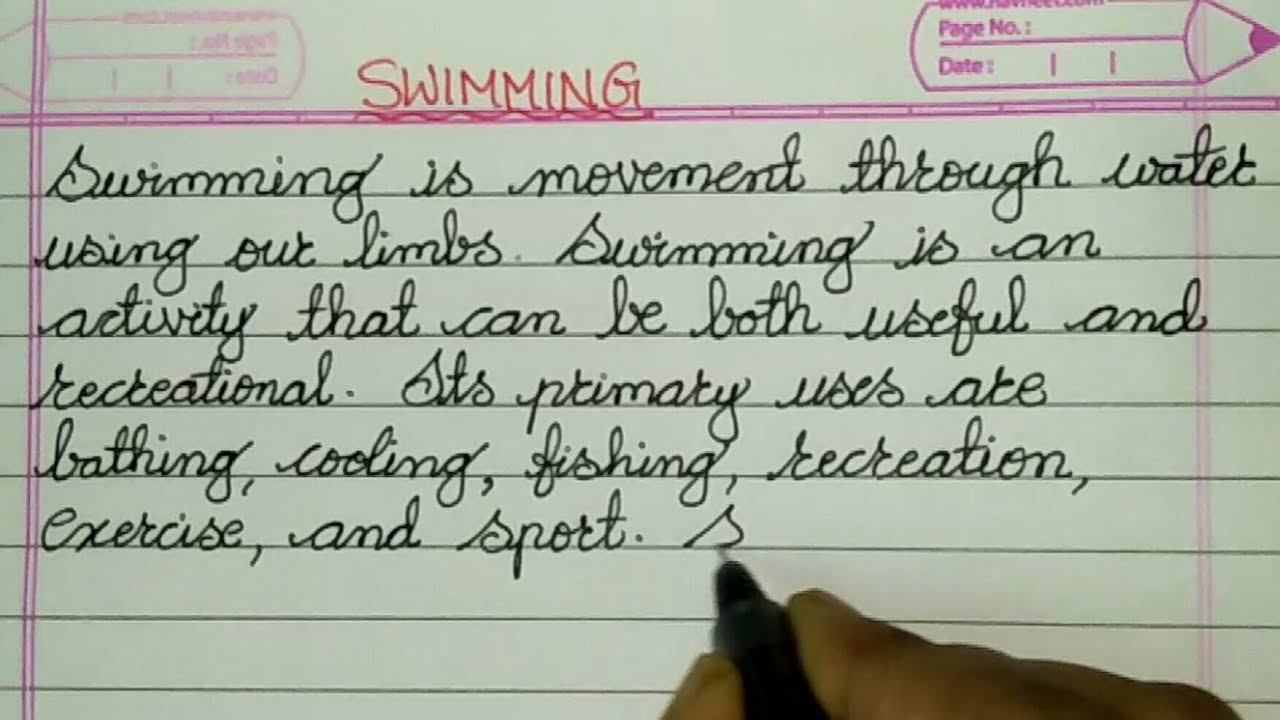 www.navneet.com
Page No.:
Date:
SWIMMING
Swimming is movement through water
using our limbs. Swimming is an
activity that can be both useful and
recreational. Its primary uses are
bathing, cooling, fishing, recreation,
exercise, and sport. S